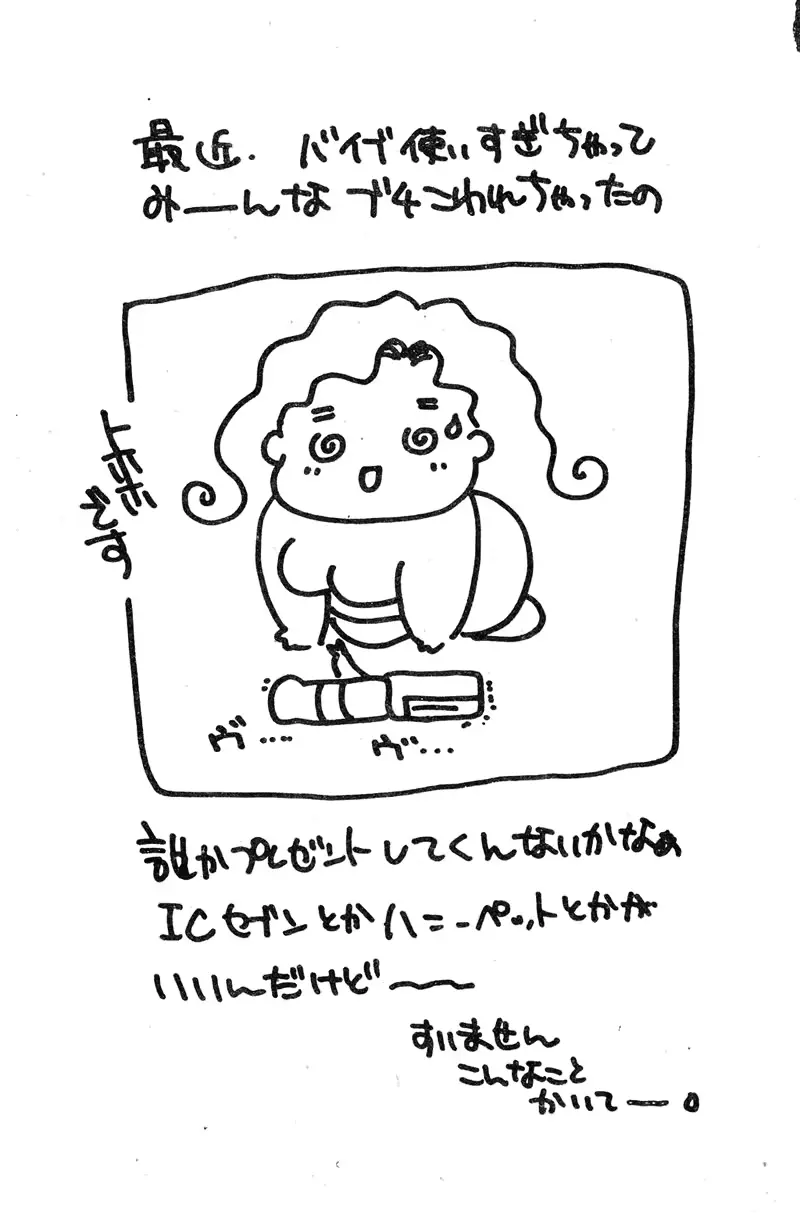 最近. バイブ使いすぎちゃって
みーんなブチこわれちゃったの
上むきです
ヴ‥‥
ヴ‥‥
誰かプレゼントしてくんないかなぁ
ICセブンとかハニーペットとかが
いいんだけど〜〜
すいません
こんなこと
かいてー。